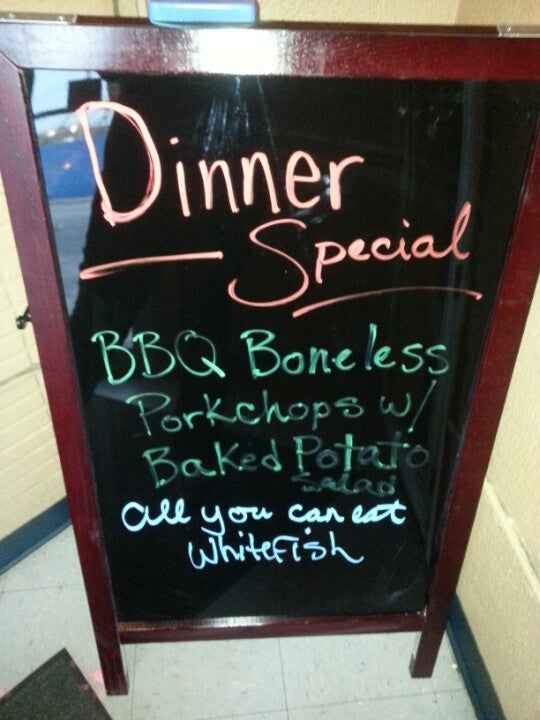 Dinner
Special
BBQ Boneless
Porkchops w/
Baked Potato
Salad
All you can eat
Whitefish